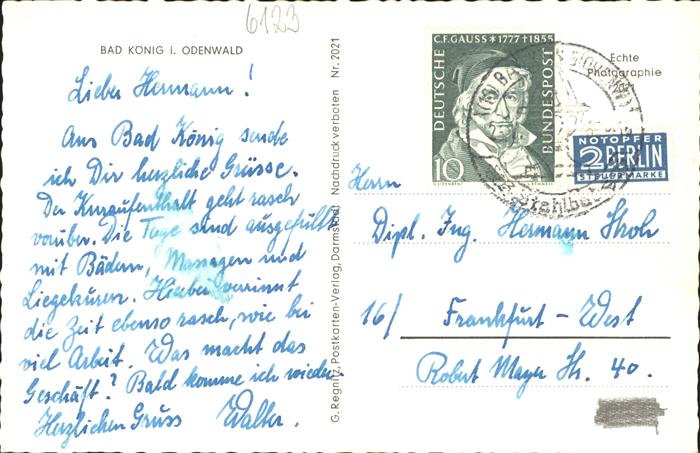 6123
BAD KÖNIG i. ODENWALD
Lieber Hermann!
Aus Bad König sende
ich Dir herzliche Grüsse.
Der Kuraufenthalt geht rasch
vorüber. Die Tage sind ausgefüllt
mit Bädern, Massagen und
Liegekuren. Hierbei verrinnt
die Zeit ebenso rasch, wie bei
viel Arbeit. Was macht das
Geschäft? Bald komme ich wieder
Herzlichen Gruss Walter.
G. Regnitz, Postkarten-Verlag, Darmstadt Nachdruck verboten Nr. 2021
C.F. GAUSS * 1777 † 1855
DEUTSCHE
BUNDESPOST
10
Echte
Photographie
NOTOPFER
2 BERLIN
STEUERMARKE
Herrn
Dipl. Ing. Hermann Stroh
16/ Frankfurt - West
Robert Mayer Str. 40.